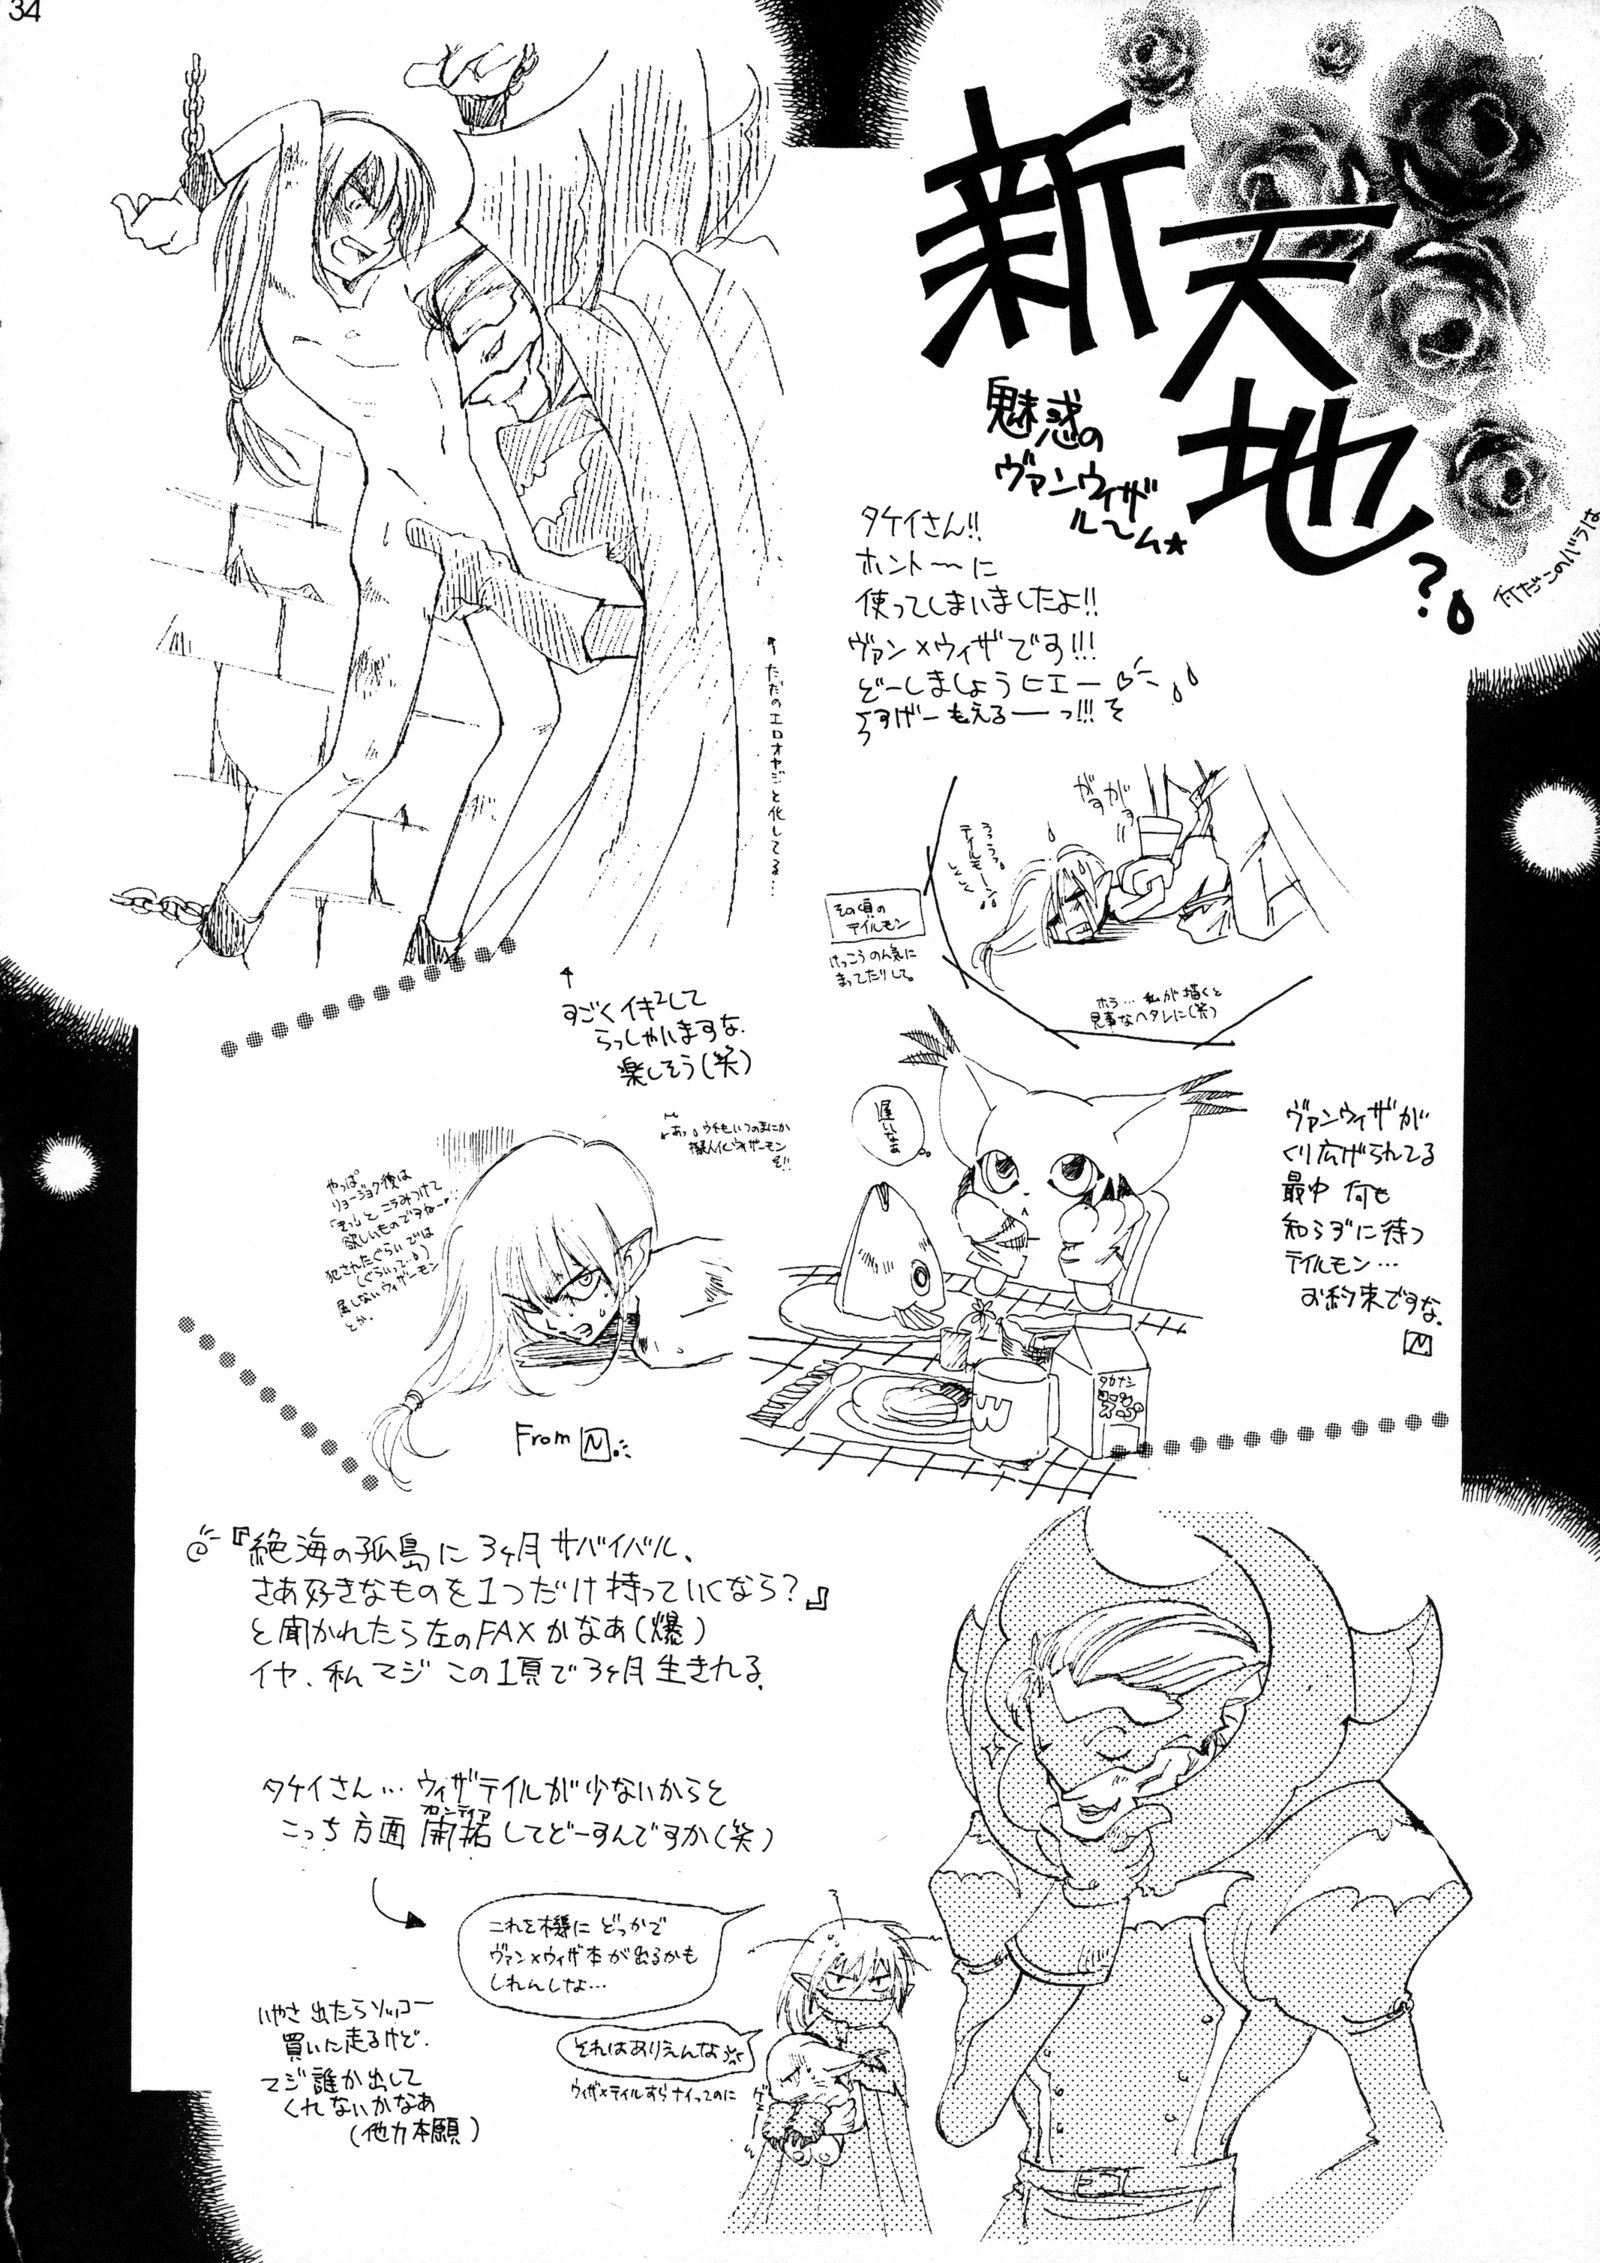 34
新天地?
魅惑の
ヴァンウィザ
ル〜ム★
何だこのバラは
タケイさん!!
ホント〜に
使ってしまいましたよ!!
ヴァン×ウィザです!!!
どーしましょうヒエー
すげーもえるーっ!!!
ただのエロオヤジと化してる…
すごくイキ²して
らっしゃいますな.
楽しそう(笑)
がすがす
テイルモーン
その頃の
テイルモン
けっこうのん気に
まってたりして。
ホラ…私が描くと
見事なヘタレに(笑)
遅いなあ
ヴァンウィザが
くり広げられてる
最中 何も
知らずに待つ
テイルモン…
お約束ですな.
N
あっウチもいつのまにか
擬人化ウィザーモン
だ!!
やっぱ
リョージョク後は
「キッ」とこうみつけて
欲しいものですねー
犯されたぐらいでは
(ぐらいって…)
屈しないウィザーモン
とか.
From N
タカナシ
『絶海の孤島に3ヶ月サバイバル、
さあ好きなものを1つだけ持っていくなら?』
と聞かれたら左のFAXかなあ(爆)
イヤ、私マジこの1頁で3ヶ月生きれる.
タケイさん…ウィザテイルが少ないからと
こっち方面 開拓してどーすんですか(笑)
これを機に どっかで
ヴァン×ウィザ本が出るかも
しれんしな…
それはありえんなあ
ウィザ×テイルすらナイってのに
いやさ 出たらソッコー
買いに走るけど.
マジ誰か出して
くれないかなあ
(他力本願)